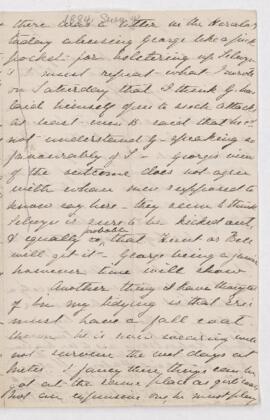 there was a letter in the Herald
today abusing George like a pick
pocket for bolstering up Selwyn
I must repeat what I wrote
on Saturday that I think G. has
laid himself open to such attacks
at least B said that he
not understand G speaking so
favourably of S - George's view
of the outcome does not agree
with whom men supposed to
know say here - they seem to think
Selwyn is sure to be kicked out,
& equally probable that Kent as Bell
will get it - George being a
however time will show
Another thing I have thought
of in my tidying is that
must have a fall coat
the one he is now wearing will
not survive the wet days at
I fancy these things can be
at the same place as
not expensive one he must